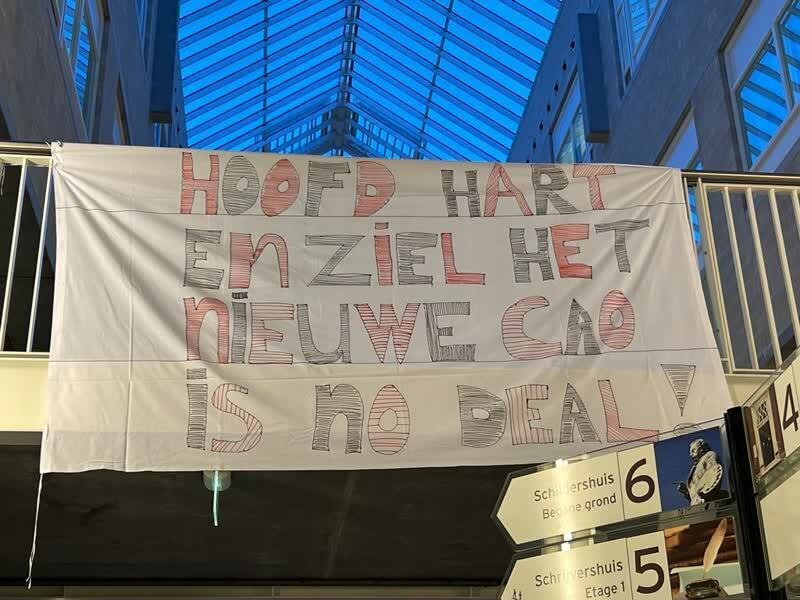 HOOFD HART
EN ZIEL HET
NIEUWE CAO
is no DEAL!
Schildershuis
Begane grond
6
Schrijvershuis
Etage 1
5
4